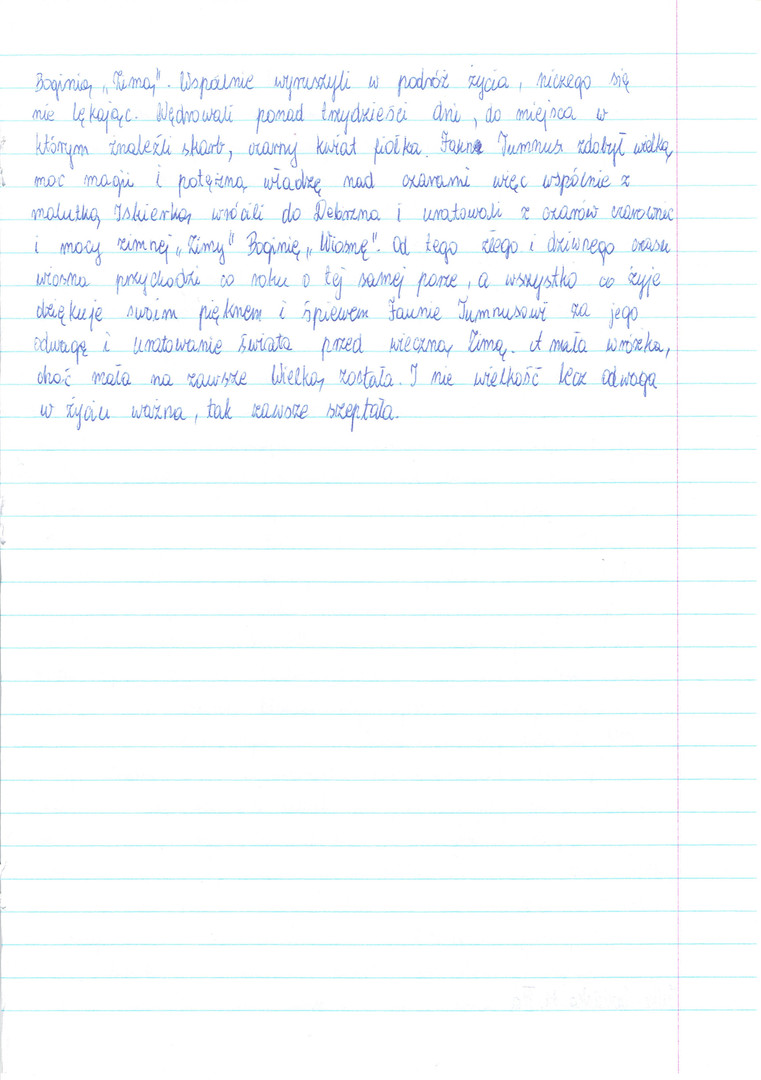 Boginią „Zimą". Wspólnie wyruszyli w podróż życia, niczego się
nie lękając. Wędrowali ponad trzydzieści dni, do miejsca w
którym znaleźli skarb, czarny kwiat fiołka. Faun Tumnus zdobył wielką
moc magii i potężną władzę nad czarami więc wspólnie z
malutką Iskierką wrócili do Debrzna i uratowali z czarów czarownic
i mocy zimnej „Zimy" Boginię „Wiosnę". Od tego złego i dziwnego czasu
wiosna przychodzi co roku o tej samej porze, a wszystko co żyje
dziękuje swoim pięknem i śpiewem Faunie Tumnusowi za jego
odwagę i uratowanie świata przed wieczną Zimą. A mała wróżka,
choć mała na zawsze Wielką została. I nie wielkość lecz odwaga
w życiu ważna, tak zawsze szeptała.